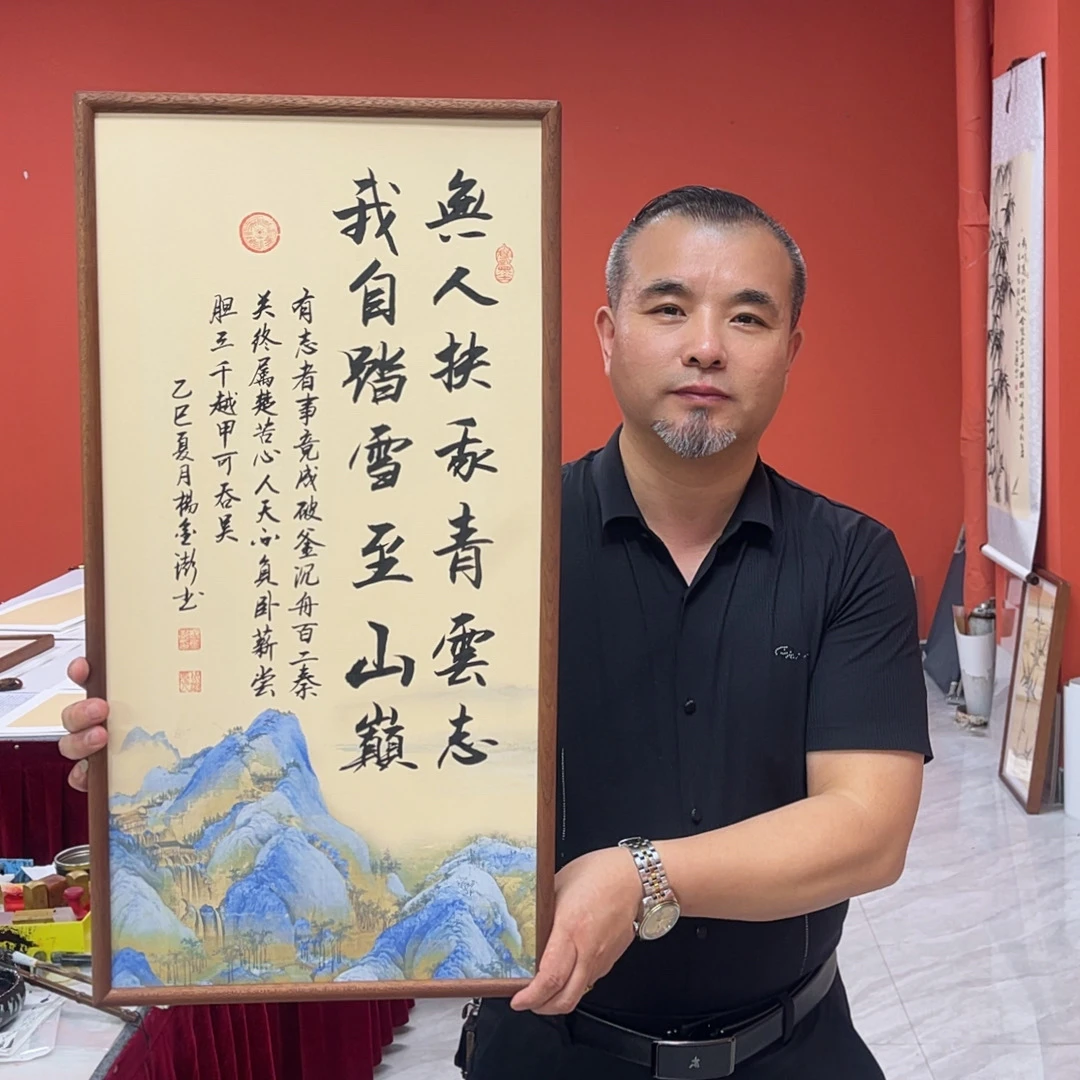 無人扶我青雲志
我自踏雪至山巔
有志者事竟成破釜沉舟百二秦
关终属楚苦心人天不負卧薪尝
胆三千越甲可吞吴
乙巳夏月楊金澎书